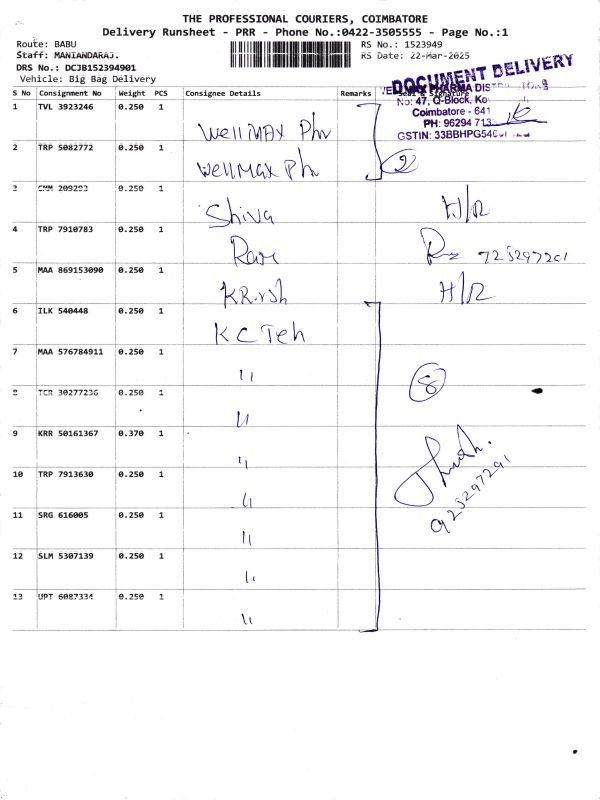 THE PROFESSIONAL COURIERS, COIMBATORE
Delivery Runsheet - PRR - Phone No.:0422-3505555 - Page No.:1
Route: BABU
RS No.: 1523949
Staff: MANIANDARAJ.
RS Date: 22-Mar-2025
DRS No.: DCJB152394901
Vehicle: Big Bag Delivery
DOCUMENT DELIVERY
S No Consignment No Weight PCS Consignee Details Remarks Seal & Signature
PHARMA
No: 47, Q-Block,
Coimbatore - 641
PH: 96294
GSTIN: 33BBHPG54
1 TVL 3923246 0.250 1 WellMAX Phr
2 TRP 5082772 0.250 1 WellMax Phr 2
3 CMM 209293 0.250 1 Shiva H/R
4 TRP 7910783 0.250 1 Ram 725297201
5 MAA 869153090 0.250 1 KRish H/R
6 ILK 540448 0.250 1 KC Teh
7 MAA 576784911 0.250 1 " 8
8 TCR 30277236 0.250 1 "
9 KRR 50161367 0.370 1 "
10 TRP 7913630 0.250 1 "
925297291
11 SRG 616005 0.250 1 "
12 SLM 5307139 0.250 1 "
13 UPT 6087334 0.250 1 "